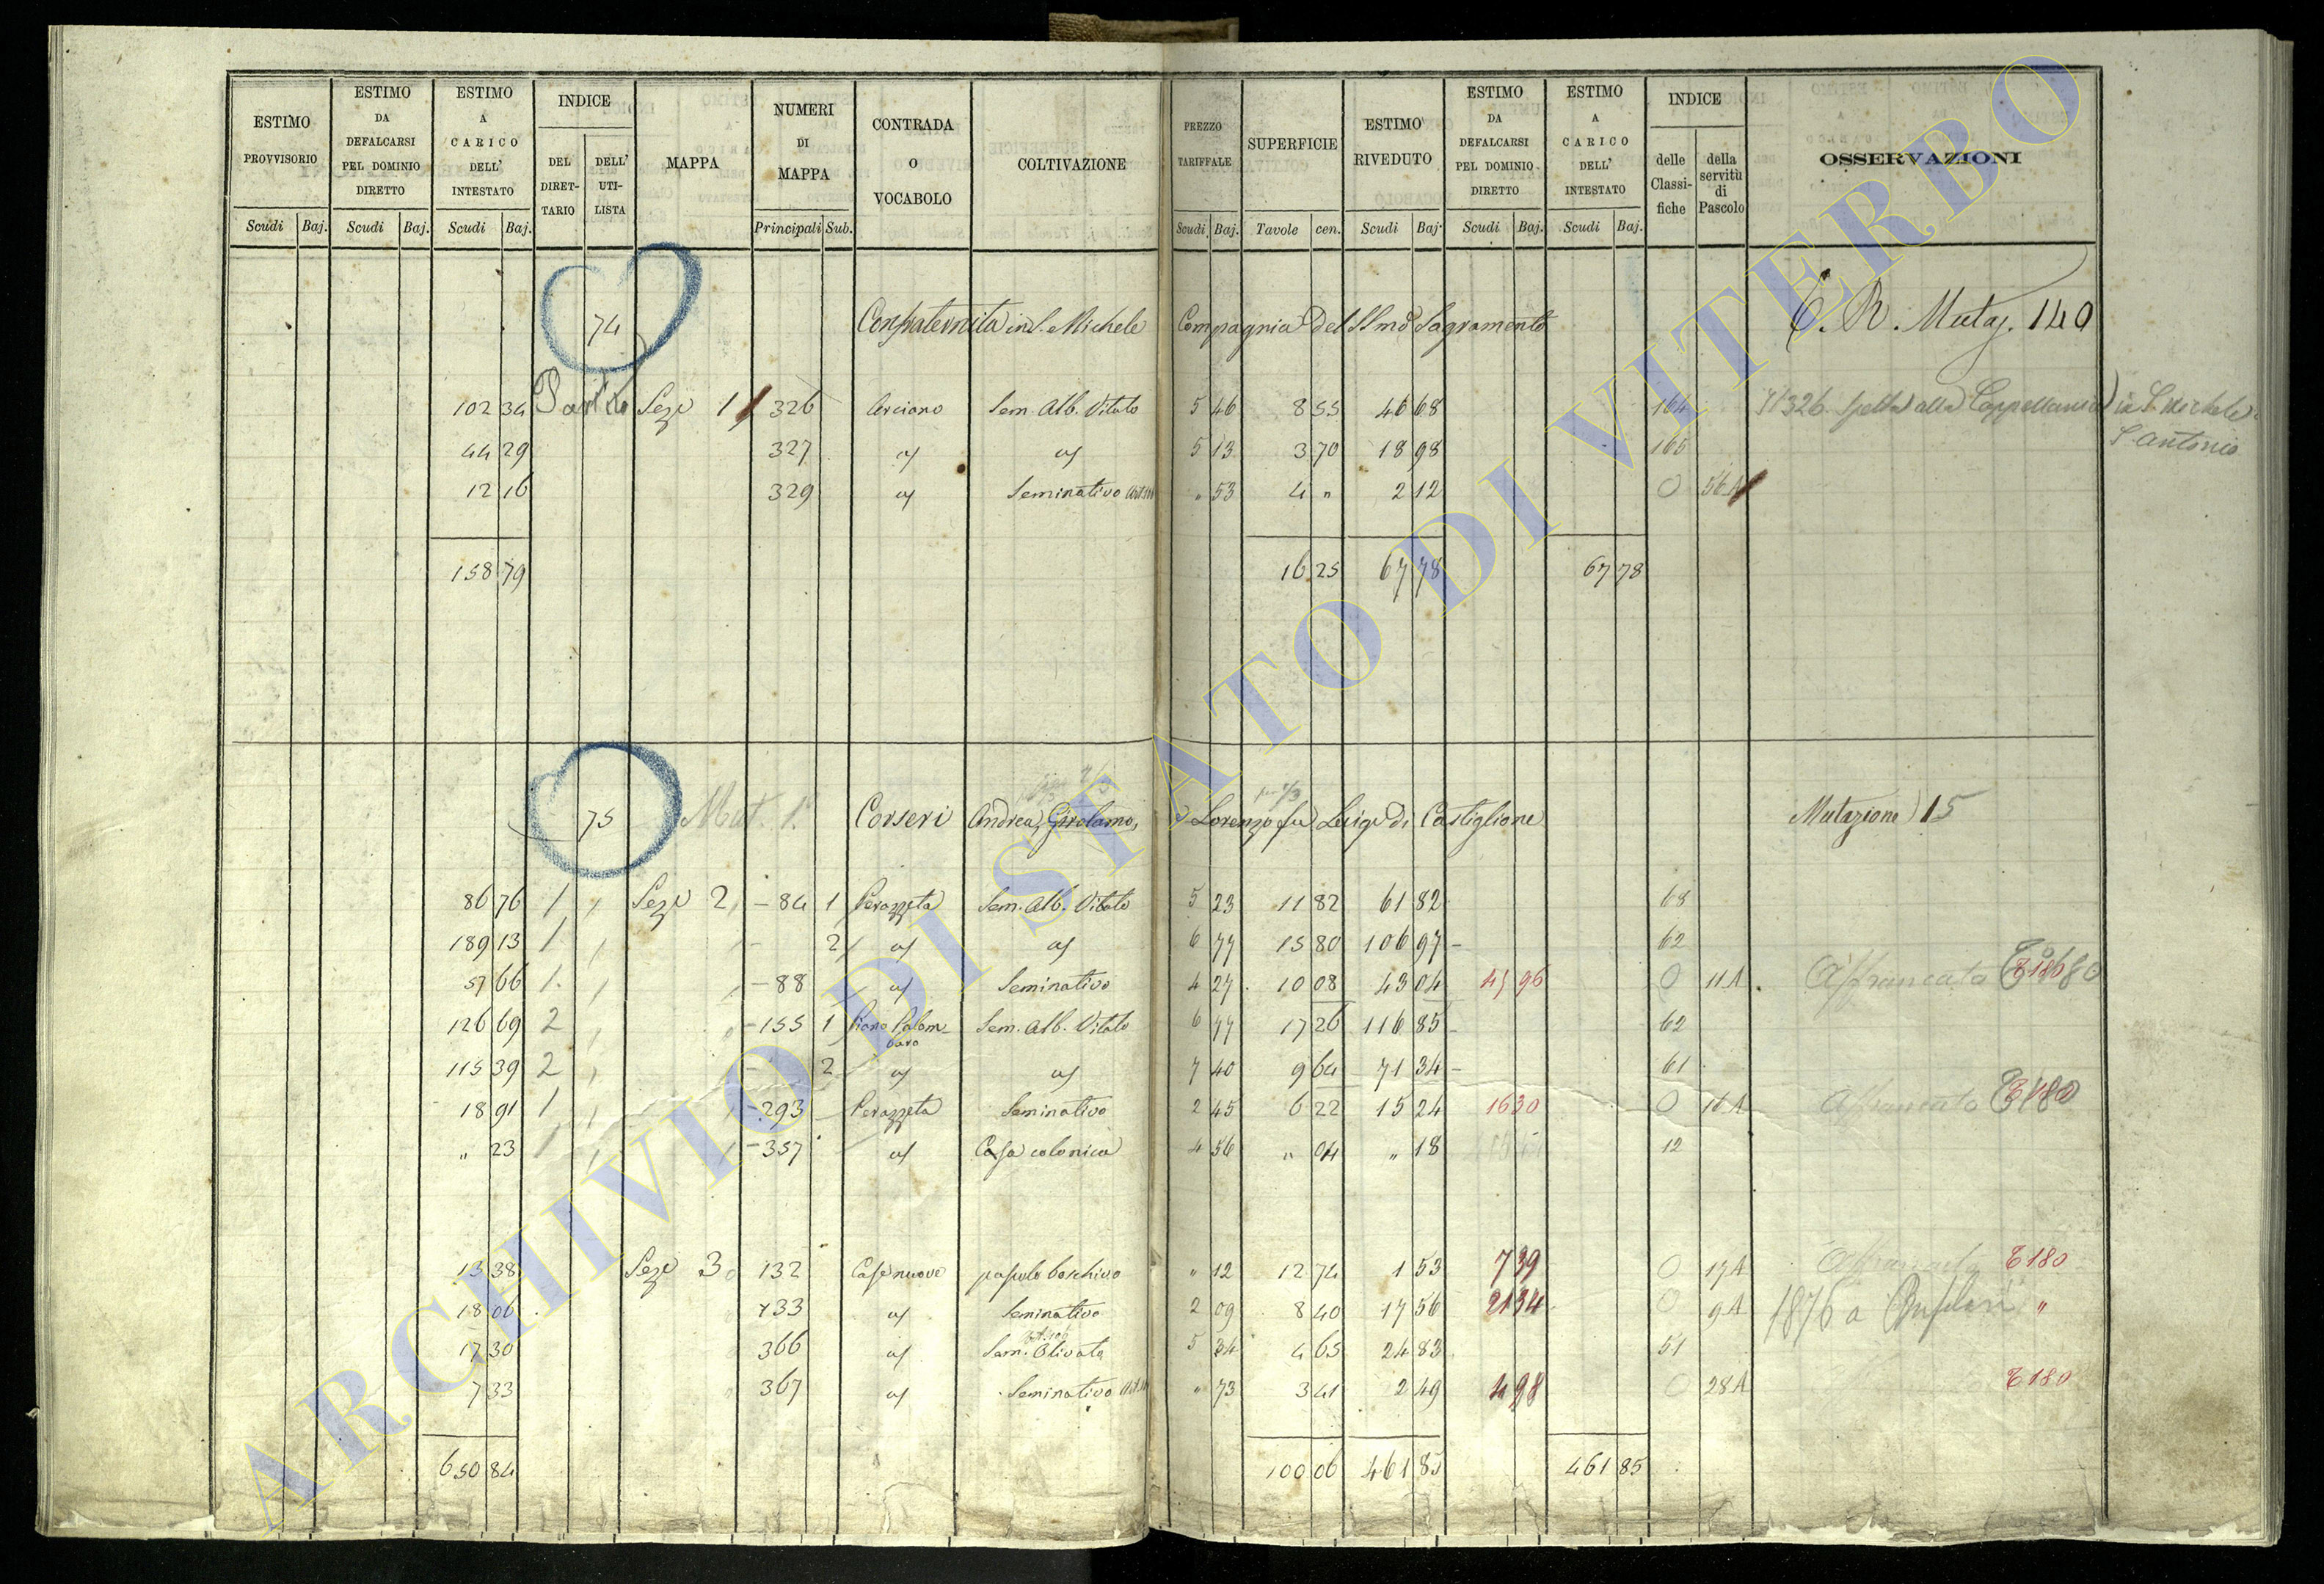 ESTIMO PROVVISORIO | ESTIMO DA DEFALCARSI PEL DOMINIO DIRETTO | ESTIMO A CARICO DELL' INTESTATO | INDICE | MAPPA | NUMERI DI MAPPA | CONTRADA O VOCABOLO | COLTIVAZIONE | PREZZO TARIFFALE | SUPERFICIE | ESTIMO RIVEDUTO | ESTIMO DA DEFALCARSI PEL DOMINIO DIRETTO | ESTIMO A CARICO DELL' INTESTATO | INDICE | OSSERVAZIONI
DEL DIRET-TARIO | DELL' UTI-LISTA | delle Classi-fiche | della servitù di Pascolo
Scudi | Baj. | Scudi | Baj. | Scudi | Baj. | Principali | Sub. | Scudi | Baj. | Tavole | cen. | Scudi | Baj. | Scudi | Baj. | Scudi | Baj.
74 Confraternita in S. Michele Compagnia del SSmo Sagramento C. R. Mutaz. 140
102 34 Sez.e 1 326 Arciano Sem. Alb. Vitato 5 46 8 55 46 68 164 326 spetta alla Cappellania in S. Michele
S. Antonio
44 29 327 " " 5 13 3 70 18 98 165
12 16 329 " Seminativo " 53 4 " 2 12 0 56A
158 79 16 25 67 78 67 78
75 Mut. 1. Corseri Andrea, Girolamo, Lorenzo fu Luigi di Castiglione Mutazione 15
86 76 1 Sez.e 2 84 1 Perazzeta Sem. Alb. Vitato 5 23 11 82 61 82 68
189 13 1 2 " " 6 77 15 80 106 97 62
57 66 1 88 " Seminativo 4 27 10 08 43 04 45 96 0 11A Affrancato
126 69 2 155 1 Piano Palombaro Sem. Alb. Vitato 6 77 17 26 116 85 62
115 39 2 2 " " 7 40 9 64 71 34 61
18 91 1 293 Perazzeta Seminativo 2 45 6 22 15 24 16 30 0 16A Affrancato 180
" 23 1 357 " Casa colonica 4 56 " 04 " 18 12
13 38 Sez.e 3 132 Case nuove pascolo boschivo " 12 12 74 1 53 7 39 0 17A 180
18 06 133 " Seminativo 2 09 8 40 17 56 21 34 0 9A 1876 a "
17 30 366 " Sem. Olivato 5 34 4 65 24 83 51
7 33 367 " Seminativo " 73 3 41 2 49 4 98 0 28A 180
650 84 100 06 461 85 461 85
ARCHIVIO DI STATO DI VITERBO